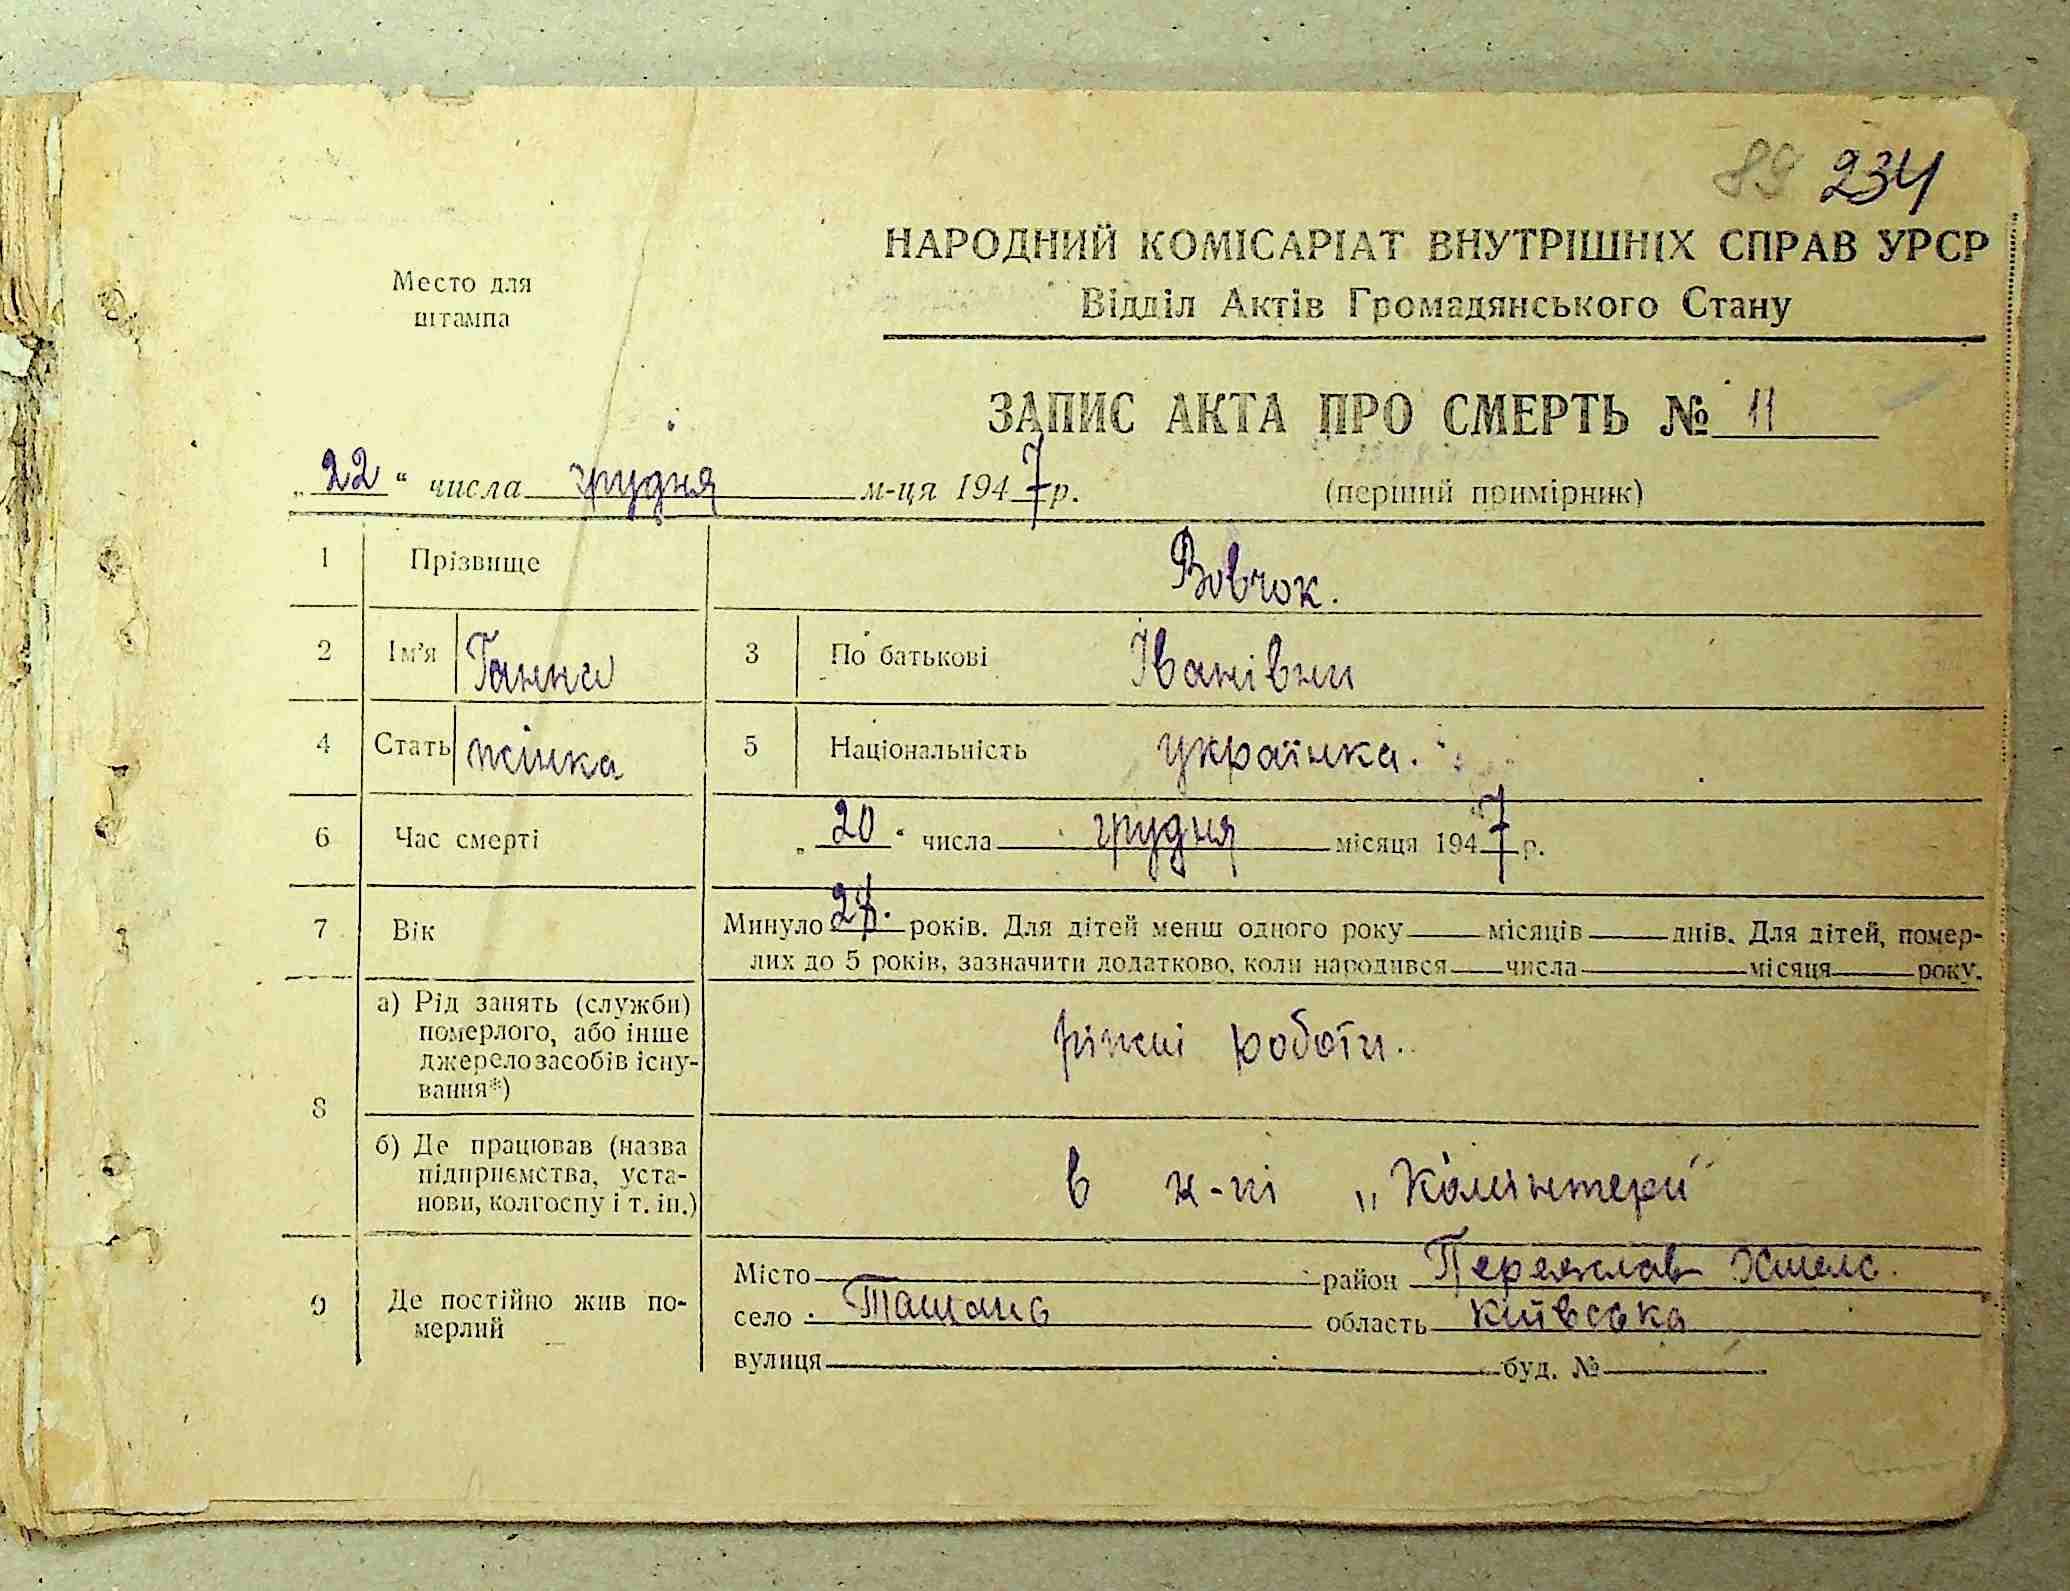 89 234
НАРОДНИЙ КОМІСАРІАТ ВНУТРІШНІХ СПРАВ УРСР
Место для
штампа
Відділ Актів Громадянського Стану
ЗАПИС АКТА ПРО СМЕРТЬ № 11
„22“ числа грудня м-ця 1947 р.
(перший примірник)
1 Прізвище Вовчок.
2 Ім’я Ганна 3 По батькові Іванівни
4 Стать жінка 5 Національність українка.
6 Час смерті „20“ числа грудня місяця 1947 р.
7 Вік Минуло років. Для дітей менш одного року місяців днів. Для дітей, помер-
лих до 5 років, зазначити додатково, коли народився числа місяця року.
8 а) Рід занять (служби)
померлого, або інше
джерело засобів існу-
вання*)
ріжні роботи.
б) Де працював (назва
підприємства, уста-
нови, колгоспу і т. ін.)
в к-пі „Комінтерн“
9 Де постійно жив по-
мерлий
Місто район Переяслав Хмелс.
село Ташань область Київська
вулиця буд. №